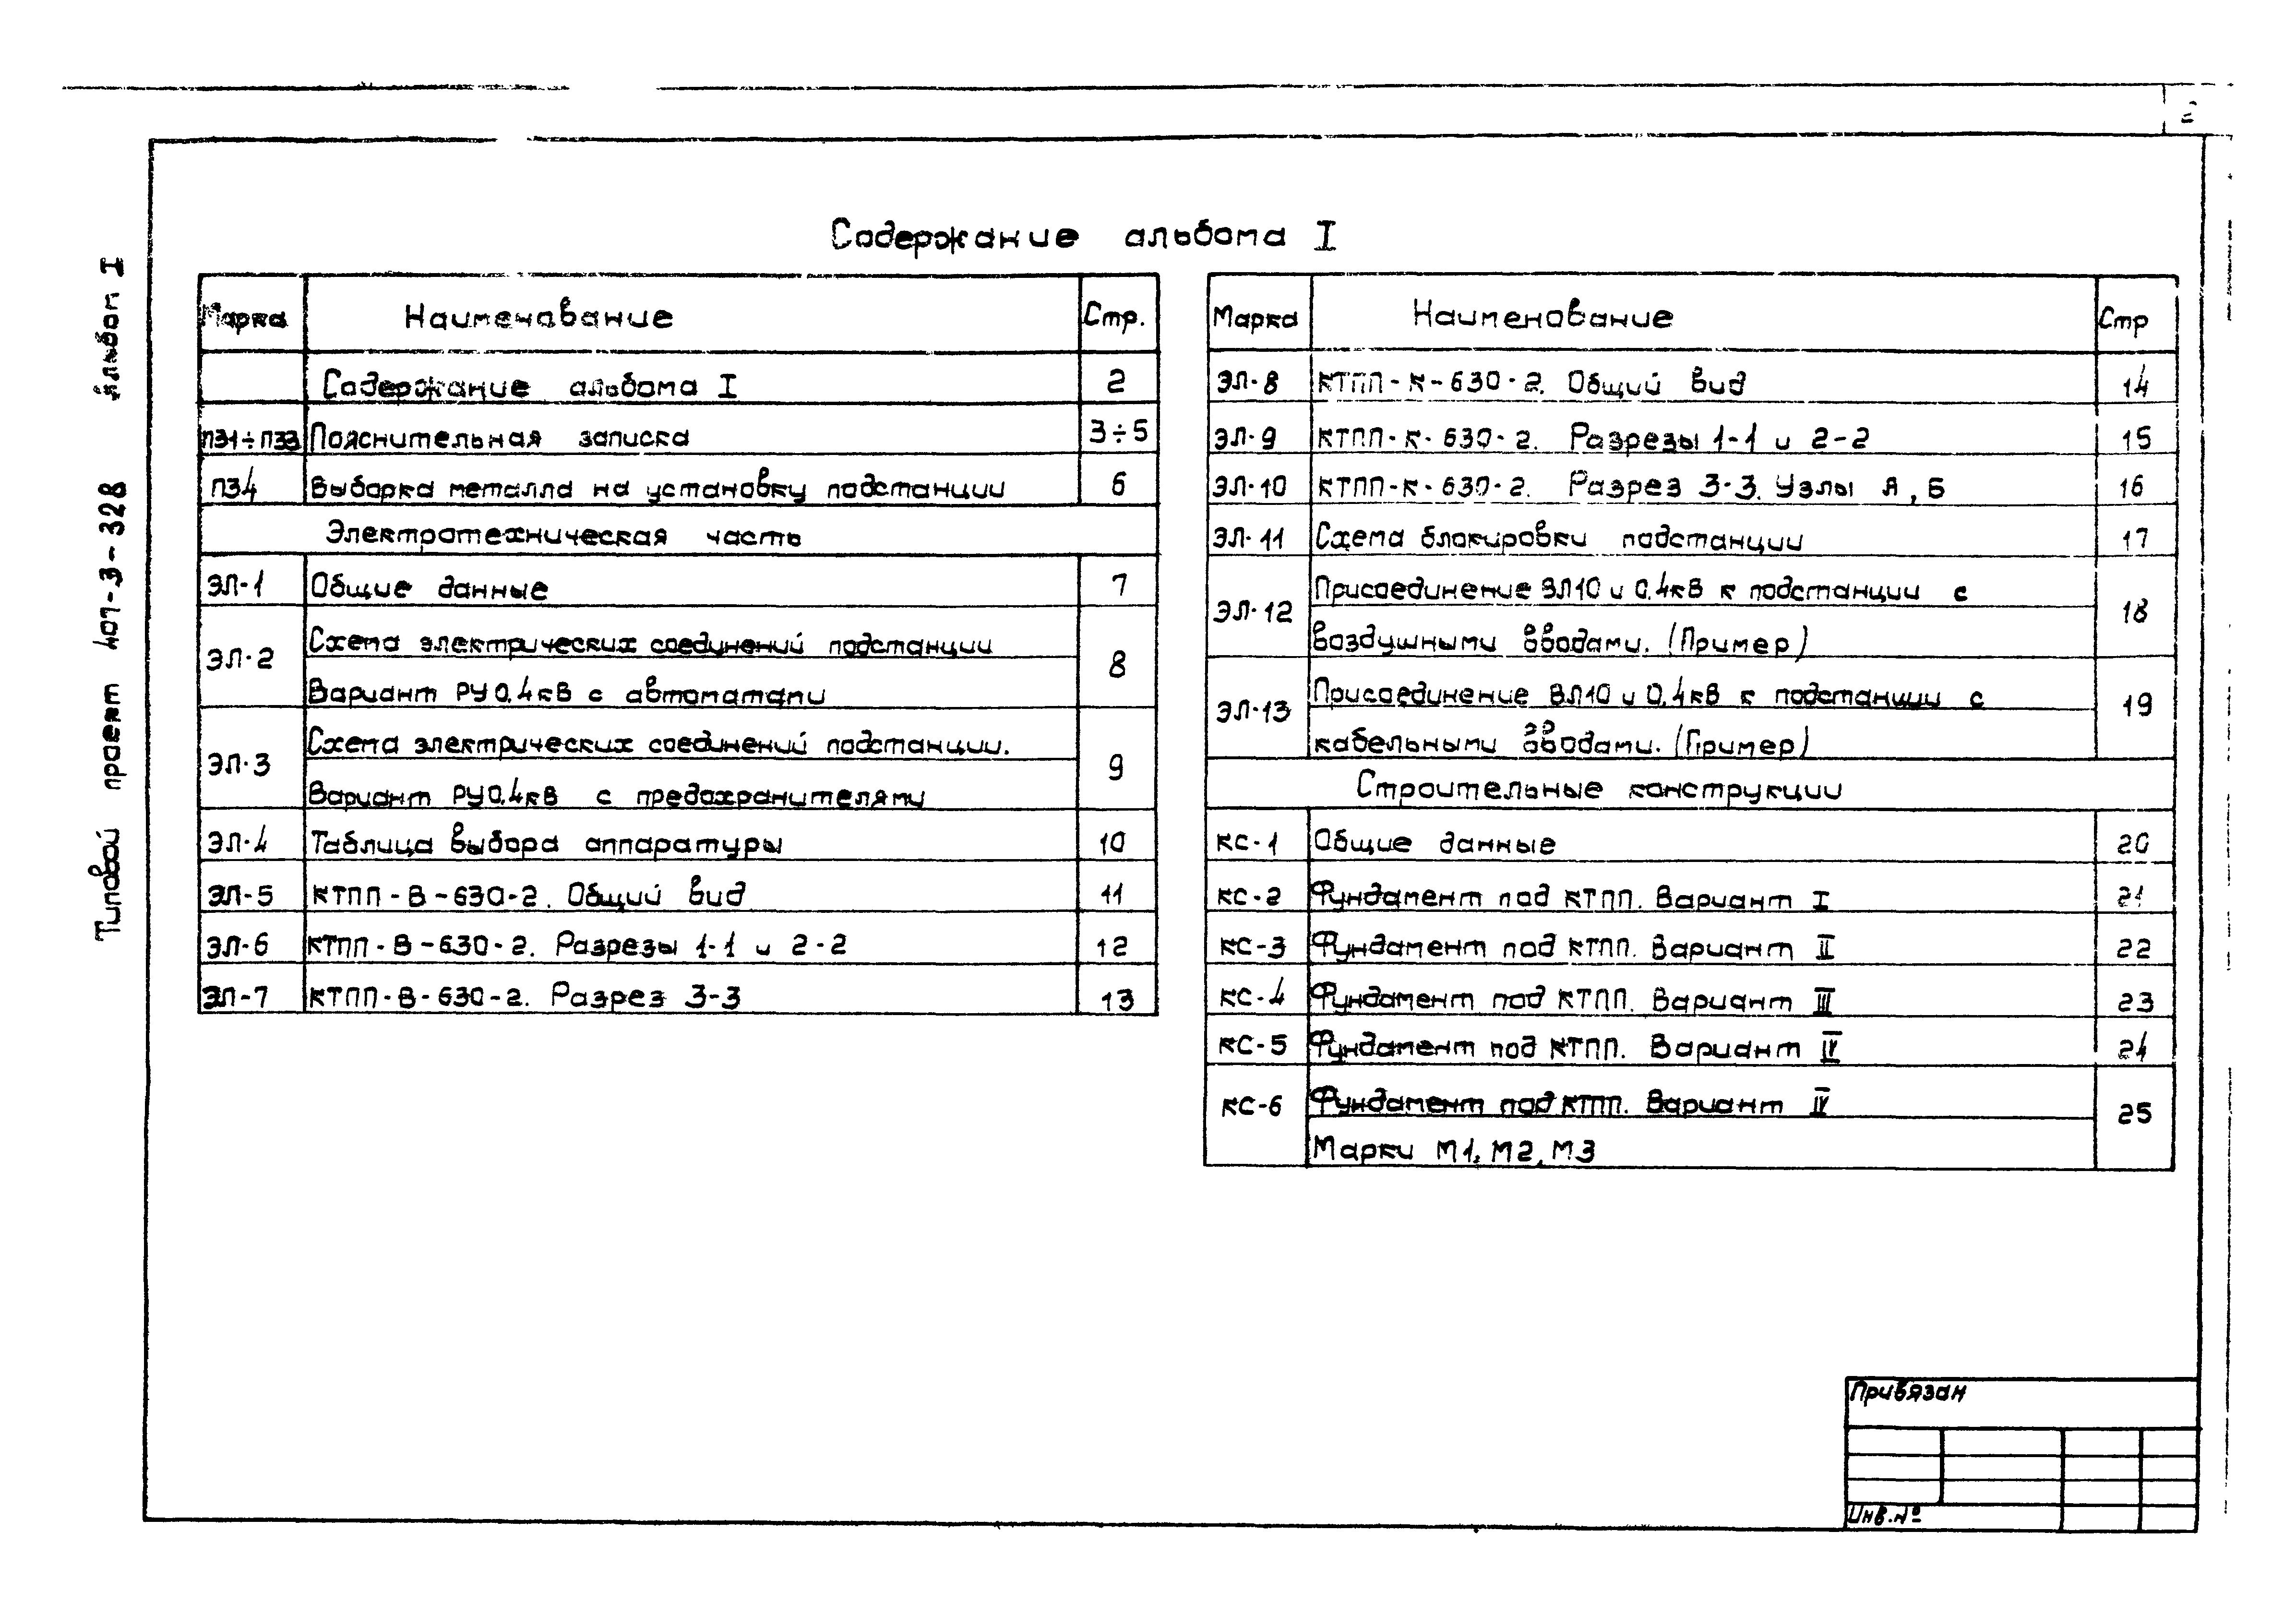 2
Типовой проект 407-3-328 Альбом I
Содержание альбома I
Марка Наименование Стр.
Содержание альбома I 2
ПЗ1÷ПЗ3 Пояснительная записка 3÷5
ПЗ4 Выборка металла на установку подстанции 6
Электротехническая часть
ЭЛ-1 Общие данные 7
ЭЛ-2 Схема электрических соединений подстанции 8
Вариант РУ 0,4кВ с автоматами
ЭЛ-3 Схема электрических соединений подстанции. 9
Вариант РУ 0,4кВ с предохранителями
ЭЛ-4 Таблица выбора аппаратуры 10
ЭЛ-5 КТПП-В-630-2. Общий вид 11
ЭЛ-6 КТПП-В-630-2. Разрезы 1-1 и 2-2 12
ЭЛ-7 КТПП-В-630-2. Разрез 3-3 13
Марка Наименование Стр
ЭЛ-8 КТПП-К-630-2. Общий вид 14
ЭЛ-9 КТПП-К-630-2. Разрезы 1-1 и 2-2 15
ЭЛ-10 КТПП-К-630-2. Разрез 3-3. Узлы А, Б 16
ЭЛ-11 Схема блокировки подстанции 17
ЭЛ-12 Присоединение ВЛ10 и 0,4кВ к подстанции с 18
воздушными вводами. (Пример)
ЭЛ-13 Присоединение ВЛ10 и 0,4кВ к подстанции с 19
кабельными вводами. (Пример)
Строительные конструкции
КС-1 Общие данные 20
КС-2 Фундамент под КТПП. Вариант I 21
КС-3 Фундамент под КТПП. Вариант II 22
КС-4 Фундамент под КТПП. Вариант III 23
КС-5 Фундамент под КТПП. Вариант IV 24
КС-6 Фундамент под КТПП. Вариант IV 25
Марки М1, М2, М3
Привязан
Инв.№